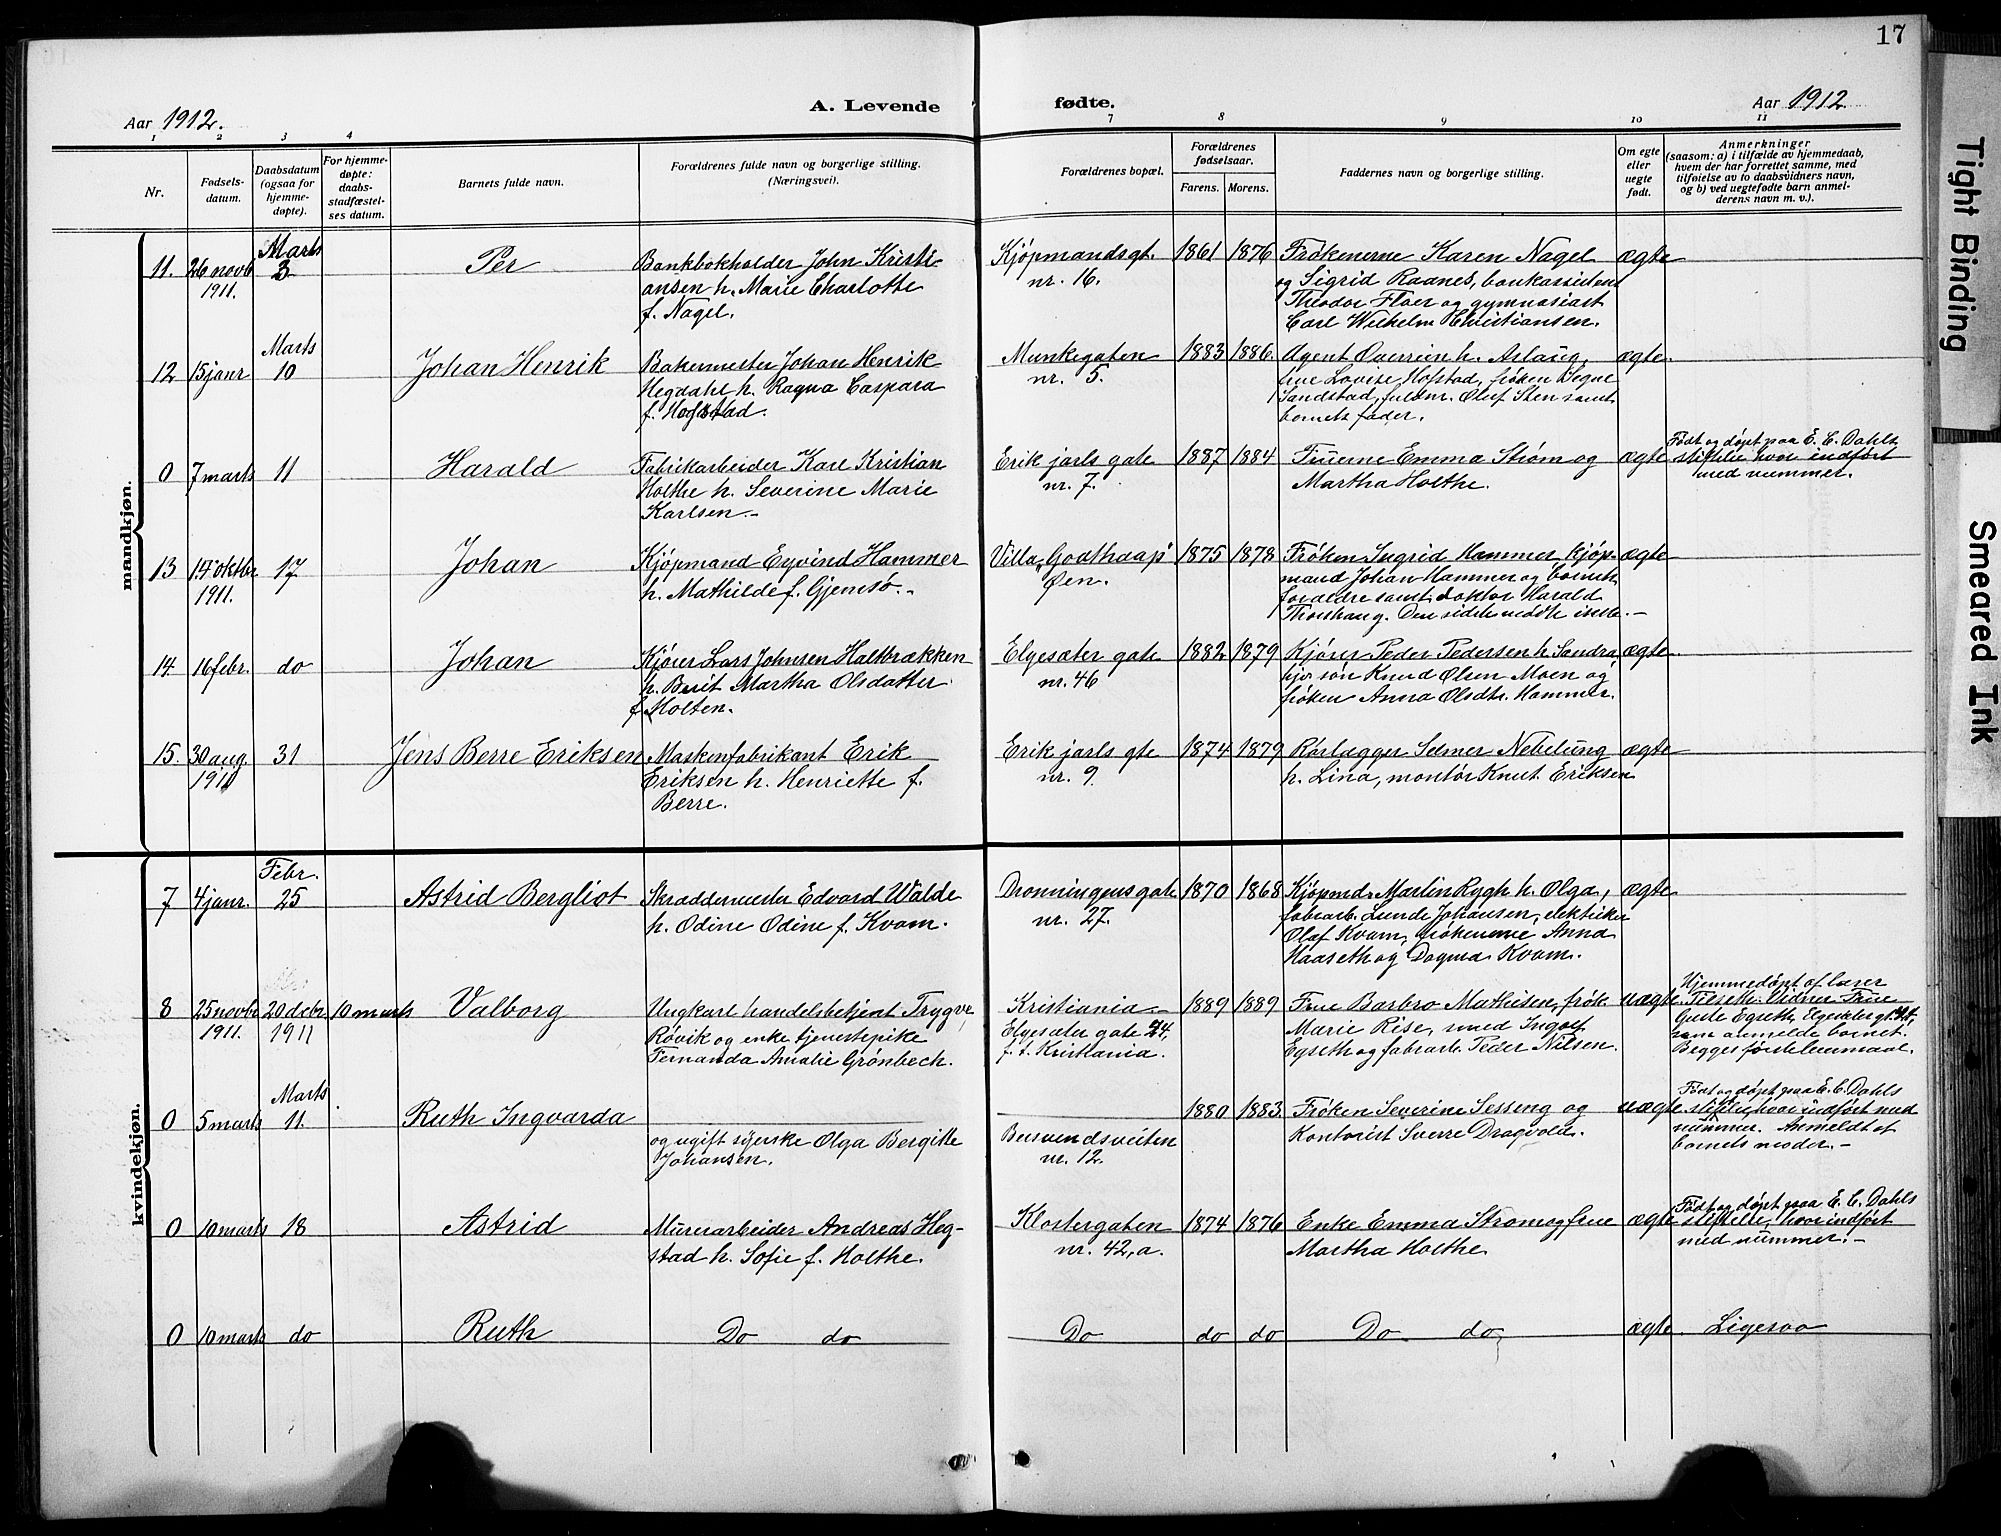 17
Aar 1912.
A. Levende fødte.
Aar 1912
1 2 3 4 7 8 9 10 11
Nr.
Fødsels-
datum.
Daabsdatum
(ogsaa for
hjemme-
døpte).
For hjemme-
døpte:
daabs-
stadfæstel-
ses datum.
Barnets fulde navn.
Forældrenes fulde navn og borgerlige stilling.
(Næringsvei).
Forældrenes bopæl.
Forældrenes
fødselsaar.
Farens. Morens.
Faddernes navn og borgerlige stilling.
Om egte
eller
uegte
født.
Anmerkninger
(saasom: a) i tilfælde av hjemmedaab,
hvem der har forrettet samme, med
tilføielse av to daabsvidners navn,
og b) ved uegtefødte barn anmel-
derens navn m. v.).
mandkjøn.
11. 26 novb 1911. Marts 3 Per
Bankbokholder John Kristi-
ansen h. Marie Charlotte
f. Nagel.
Kjøpmandsgt.
nr. 16.
1861 1876
Frøkenerne Karen Nagel
og Sigrid Raanes, bankassistent
Theodor Floer og gymnasiast
Carl Wilhelm Christiansen.
ægte
12 15 janr Marts 10 Johan Henrik
Bakermester Johan Henrik
Hegdahl h. Ragna Caspara
f. Hofstad.
Munkegaten
nr. 5.
1883 1886
Agent Overrein h. Aslaug,
frue Lovise Hofstad, frøken Signe
Sandstad, fuldm. Oluf Sten samt
barnets fader.
ægte.
0 7 marts 11 Harald
Fabrikarbeider Karl Kristian
Holthe h. Severine Marie
Karlsen.-
Erik jarls gate
nr. 7.
1887 1884
Fruerne Emma Strøm og
Martha Holthe.
ægte
Født og døpt paa E. C. Dahls
stiftelse, hvor indført
med nummer.
13 14 oktbr 1911. 17 Johan
Kjøpmand Eyvind Hammer
h. Mathilde f. Gjemsø.-
Villa "Godthaap"
Øen.
1875 1878
Frøken Ingrid Hammer, kjøp-
mand Johan Hammer og barnets
forældre samt doktor Harald
Thoushaug. Den sidste mødte ikke.-
ægte
14. 16 febr. do Johan
Kjører Lars Johnsen Haltbrækken
h. Berit Martha Olsdatter
f. Holten.
Elgesæter gate
nr. 46
1882 1879
Kjører Peder Pedersen h. Sendra,
kjørsøn Knud Olsen Moen og
frøken Anna Olsdtr. Hammer.
ægte
15. 30 aug. 1911 31 Jens Berre Eriksen
Maskinfabrikant Erik
Eriksen h. Henriette f.
Berre.
Erik jarls gte
nr. 9.
1874 1879
Rørlægger Selmer Nebelung
h. Lina, montør Knut Eriksen
ægte
kvindekjøn.
7 4 janr. Febr. 25 Astrid Bergliot
Skræddermester Edvard Walde
h. Odine Odine f. Kvam.
Dronningens gate
nr. 27.
1870 1868
Kjøpmd. Martin Rygh h. Olga,
fabrarb. Lunde Johansen, elektriker
Olaf Kvam, frøkenerne Anna
Haaseth og Dagmar Kvam.
ægte
8 25 novbr 1911. 20 decbr 1911 10 marts Valborg
Ungkarl handelsbetjent Trygve
Røvik og enke tjenestepike
Fernanda Amalie Grønbech.
Kristiania -
Elgesæter gate 24,
f. t. Kristiania.
1889 1889
Frue Barbro Mathisen, frøk.
Marie Rise, smed Ingolf
Egseth og fabrarb. Peder Nilsen.
uægte.
Hjemmedøpt af lærer
Tilseth. Vidner Frue
Guste Egseth, Elgesæter gt. 24,
som anmeldte barnet.
Begges første leiermaal.
0 5 marts Marts 11. Ruth Ingvarda
og ugift syerske Olga Bergitte
Johansen.
Bersvendsveiten
nr. 12.
1880 1883
Frøken Severine Sesseng og
Kontorist Sverre Dragvold.
uægte
Født og døpt paa E. C. Dahls
stiftelse, hvor indført med
nummer. Anmeldt af
barnets moder.-
0 10 marts 18 Astrid
Murerarbeider Andreas Heg-
stad h. Sofie f. Holthe.
Klostergaten
nr. 42, a.
1874 1876
Enke Emma Strøm og frue
Martha Holthe
ægte
Født og døpt paa E. C. Dahls
stiftelse, hvor indført
med nummer.-
0 10 marts do Ruth
Do do
Do
do do
Do do
ægte.
Ligesaa
Tight Binding
Smeared Ink